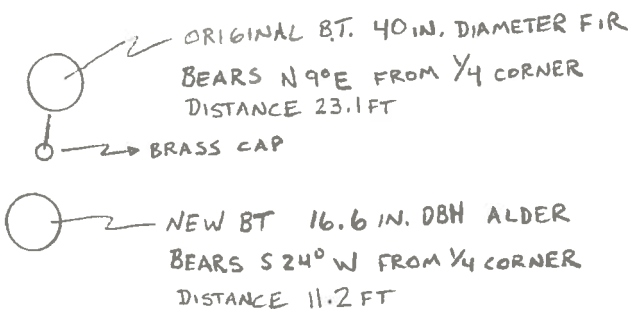 ORIGINAL B.T. 40 IN. DIAMETER FIR
BEARS N 9° E FROM 1/4 CORNER
DISTANCE 23.1 FT
BRASS CAP
NEW BT 16.6 IN. DBH ALDER
BEARS S 24° W FROM 1/4 CORNER
DISTANCE 11.2 FT